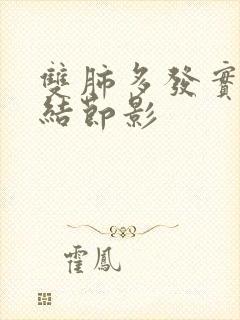 雙肺多發實
結節影
霍鳳